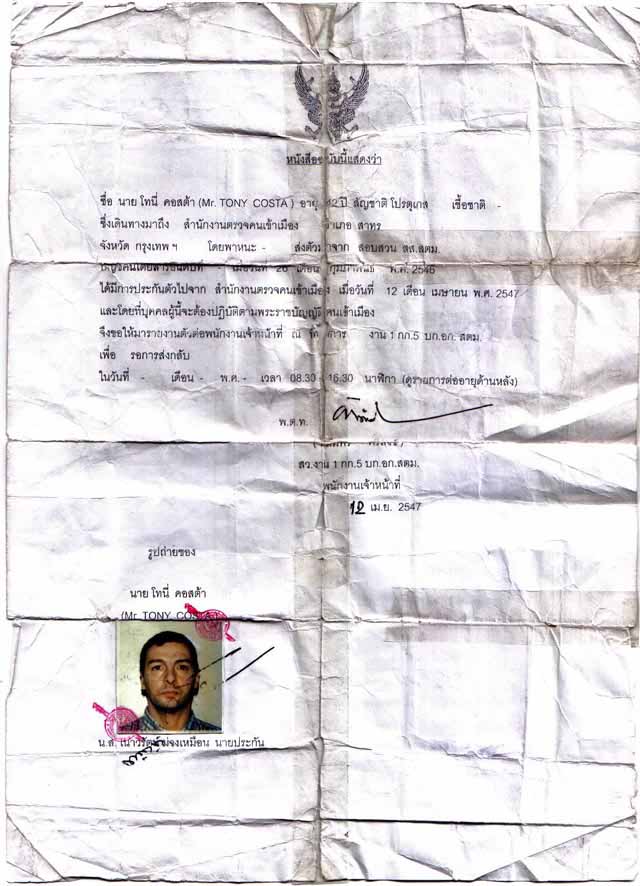 หนังสือฉบับนี้แสดงว่า
ชื่อ นาย โทนี่ คอสต้า (Mr. TONY COSTA ) อายุ 42 ปี สัญชาติ โปรตุเกส เชื้อชาติ -
ซึ่งเดินทางมาถึง สำนักงานตรวจคนเข้าเมือง อำเภอ สาทร
จังหวัด กรุงเทพ ฯ โดยพาหนะ - ส่งตัวมาจาก สอบสวน สส.สตม.
เมื่อวันที่ 26 เดือน กุมภาพันธ์ พ.ศ. 2546
ได้มีการประกันตัวไปจาก สำนักงานตรวจคนเข้าเมือง เมื่อวันที่ 12 เดือน เมษายน พ.ศ. 2547
และโดยที่บุคคลผู้นี้จะต้องปฏิบัติตามพระราชบัญญัติคนเข้าเมือง
จึงขอให้มารายงานตัวต่อพนักงานเจ้าหน้าที่ ณ งาน 1 กก.5 บก.อก. สตม.
เพื่อ รอการส่งกลับ
ในวันที่ - เดือน - พ.ศ.- เวลา 08.30 - 16.30 นาฬิกา (ดูรายการต่ออายุด้านหลัง)
พ.ต.ท.
สว.งาน 1 กก.5 บก.อก.สตม.
พนักงานเจ้าหน้าที่
12 เม.ย. 2547
รูปถ่ายของ
นาย โทนี่ คอสต้า
(Mr. TONY COSTA)
น.ส. นายประกัน